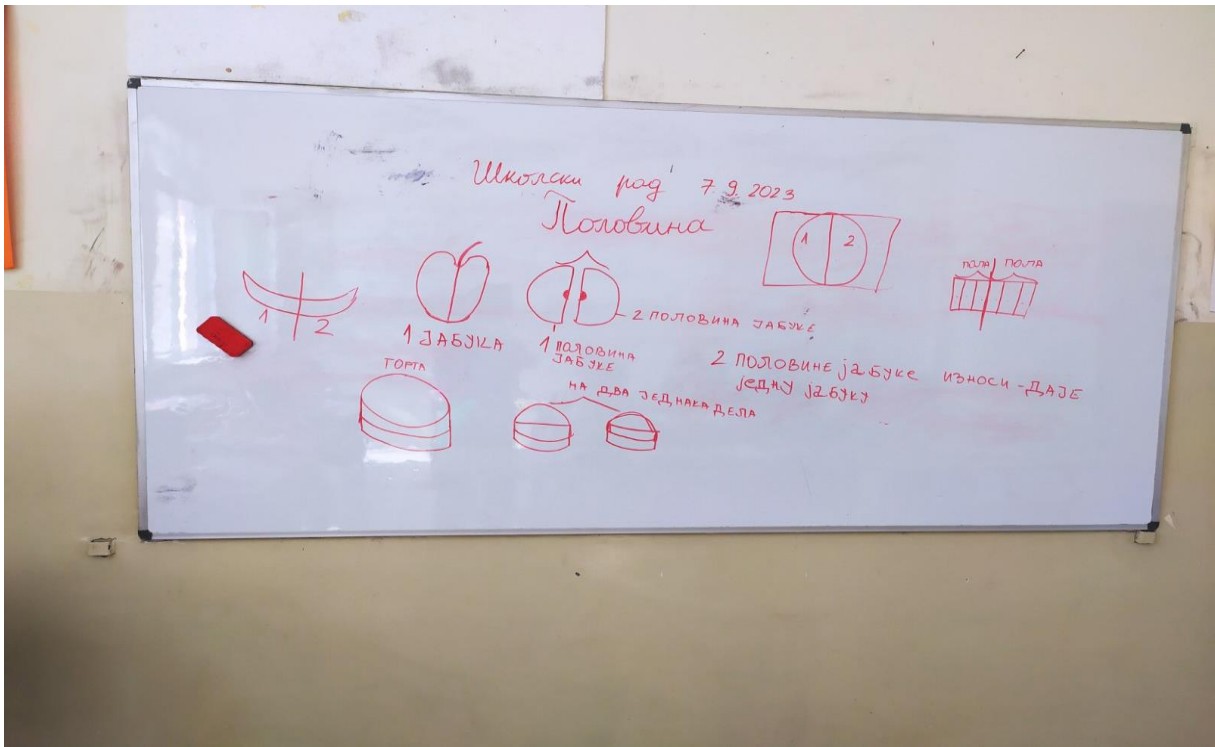 Школски рад 7.9.2023
Половина
1 2
1 2
ПОЛА ПОЛА
1 ЈАБУКА
1 ПОЛОВИНА
ЈАБУКЕ
2 ПОЛОВИНА ЈАБУКЕ
2 ПОЛОВИНЕ јаБУКЕ ИЗНОСИ - ДАЈЕ
јЕДНУ јаБУКУ
ТОРТА
НА ДВА ЈЕДНАКА ДЕЛА